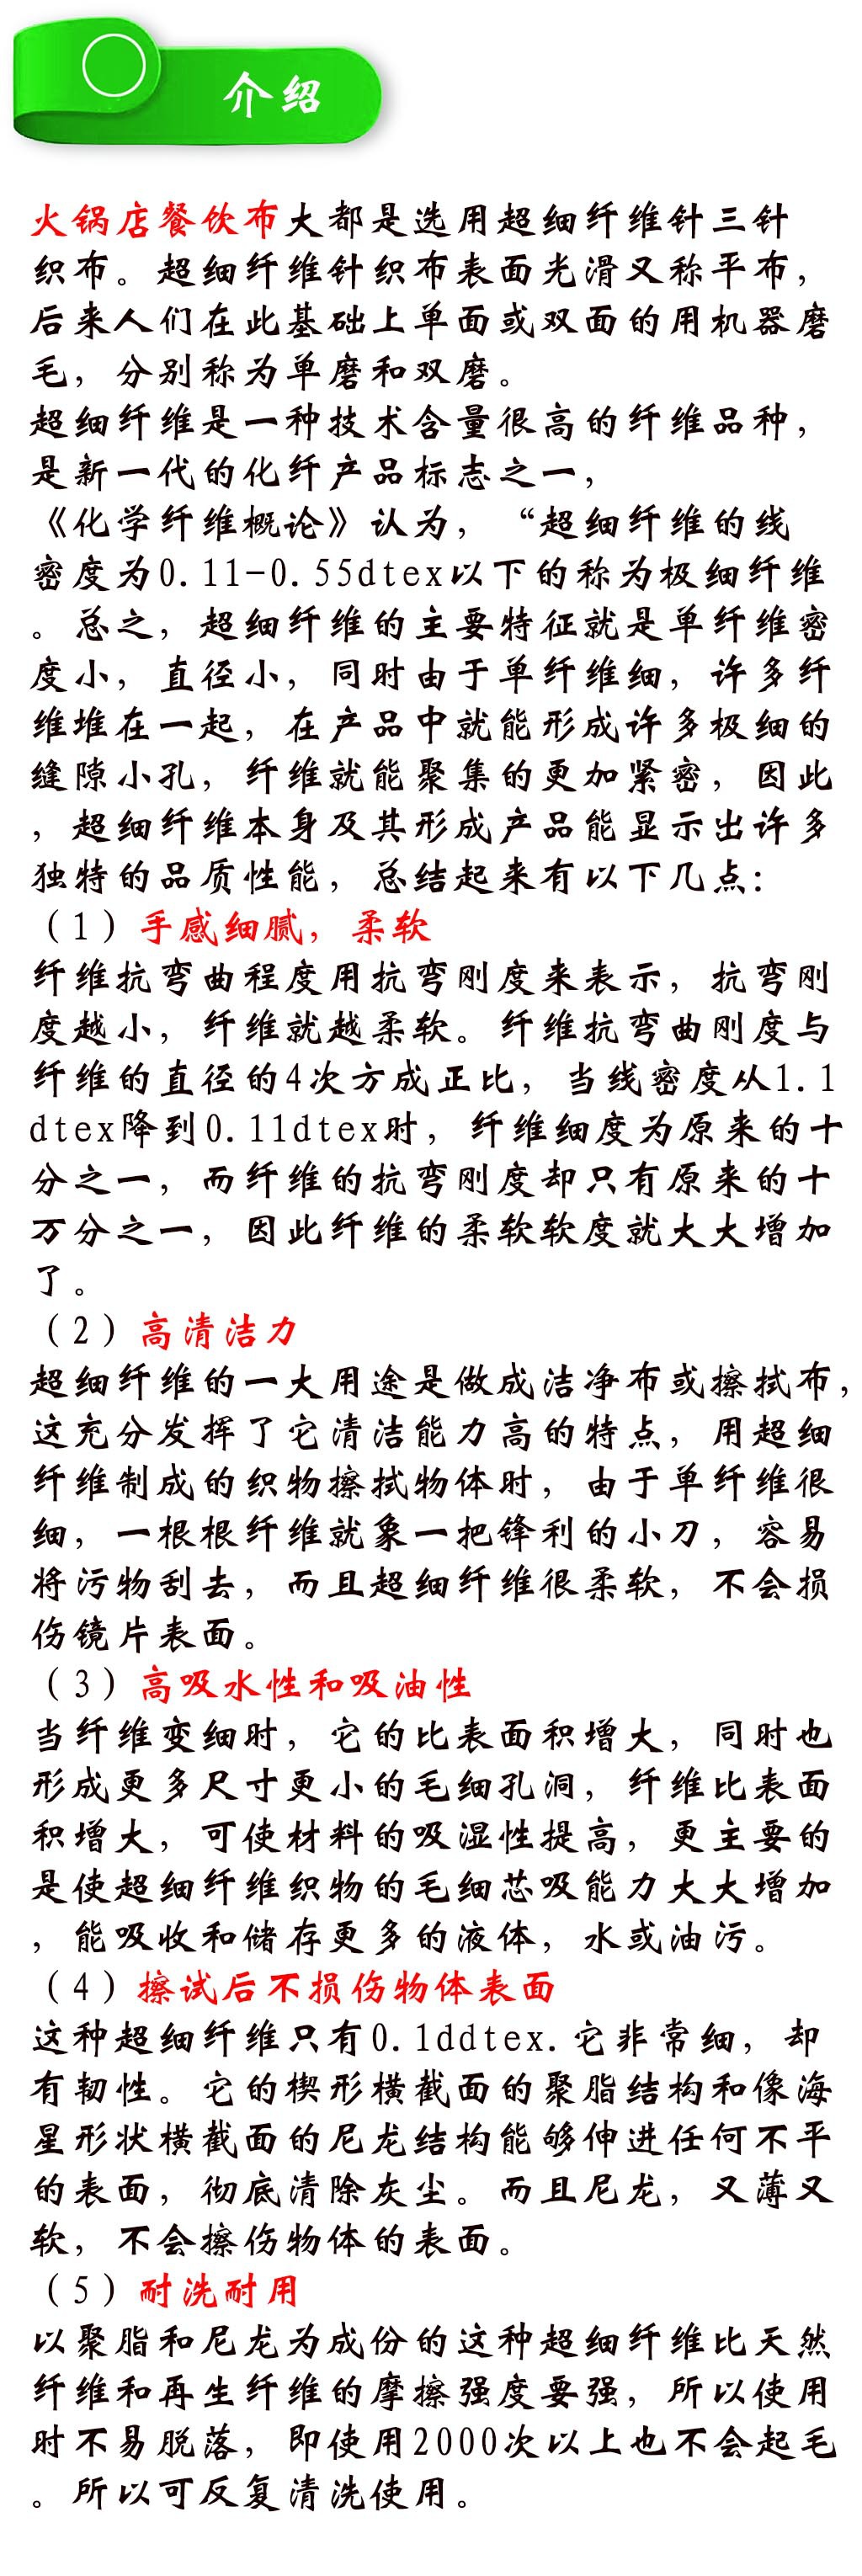 介绍
火锅店餐饮布大都是选用超细纤维针三针
织布。超细纤维针织布表面光滑又称平布，
后来人们在此基础上单面或双面的用机器磨
毛，分别称为单磨和双磨。
超细纤维是一种技术含量很高的纤维品种，
是新一代的化纤产品标志之一，
《化学纤维概论》认为，“超细纤维的线
密度为0.11-0.55dtex以下的称为极细纤维
。总之，超细纤维的主要特征就是单纤维密
度小，直径小，同时由于单纤维细，许多纤
维堆在一起，在产品中就能形成许多极细的
缝隙小孔，纤维就能聚集的更加紧密，因此
，超细纤维本身及其形成产品能显示出许多
独特的品质性能，总结起来有以下几点：
（1）手感细腻，柔软
纤维抗弯曲程度用抗弯刚度来表示，抗弯刚
度越小，纤维就越柔软。纤维抗弯曲刚度与
纤维的直径的4次方成正比，当线密度从1.1
dtex降到0.11dtex时，纤维细度为原来的十
分之一，而纤维的抗弯刚度却只有原来的十
万分之一，因此纤维的柔软软度就大大增加
了。
（2）高清洁力
超细纤维的一大用途是做成洁净布或擦拭布，
这充分发挥了它清洁能力高的特点，用超细
纤维制成的织物擦拭物体时，由于单纤维很
细，一根根纤维就象一把锋利的小刀，容易
将污物刮去，而且超细纤维很柔软，不会损
伤镜片表面。
（3）高吸水性和吸油性
当纤维变细时，它的比表面积增大，同时也
形成更多尺寸更小的毛细孔洞，纤维比表面
积增大，可使材料的吸湿性提高，更主要的
是使超细纤维织物的毛细芯吸能力大大增加
，能吸收和储存更多的液体，水或油污。
（4）擦试后不损伤物体表面
这种超细纤维只有0.1ddtex.它非常细，却
有韧性。它的楔形横截面的聚脂结构和像海
星形状横截面的尼龙结构能够伸进任何不平
的表面，彻底清除灰尘。而且尼龙，又薄又
软，不会擦伤物体的表面。
（5）耐洗耐用
以聚脂和尼龙为成份的这种超细纤维比天然
纤维和再生纤维的摩擦强度要强，所以使用
时不易脱落，即使用2000次以上也不会起毛
。所以可反复清洗使用。